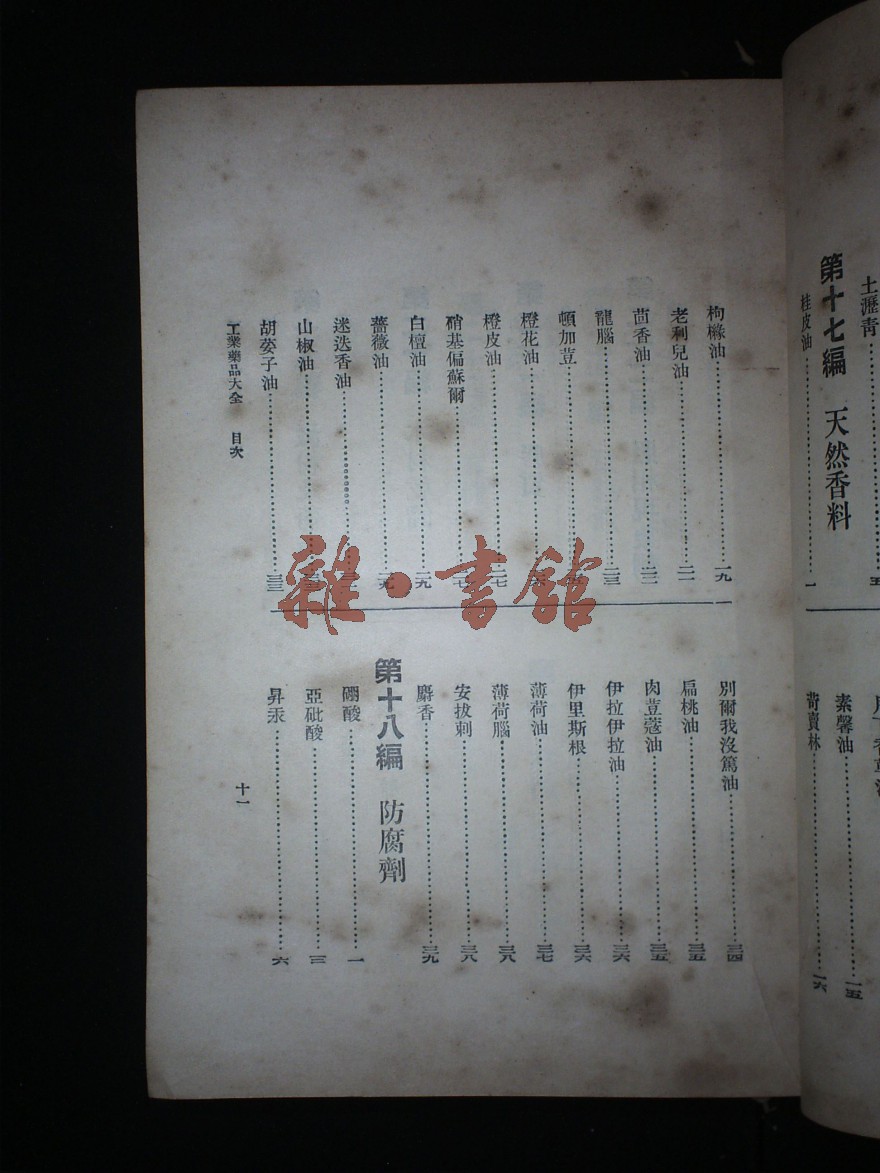 土瀝青……五
第十七編 天然香料
桂皮油……一
素馨油……一五
苛賣林……一六
枸櫞油……一九
老利兒油……二一
茴香油……二二
龍腦……二三
頓加荳……
橙花油……
橙皮油……二七
硝基偏蘇爾……
白檀油……二九
薔薇油……二九
迷迭香油……
山椒油……
胡荽子油……三三
別爾我沒篤油……三四
扁桃油……三五
肉荳蔻油……三五
伊拉伊拉油……三六
伊里斯根……三六
薄荷油……三七
薄荷腦……三八
安拔刺……三八
麝香……三九
第十八編 防腐劑
硼酸……一
亞砒酸……三
昇汞……六
工業藥品大全 目次
十一
雜·書館